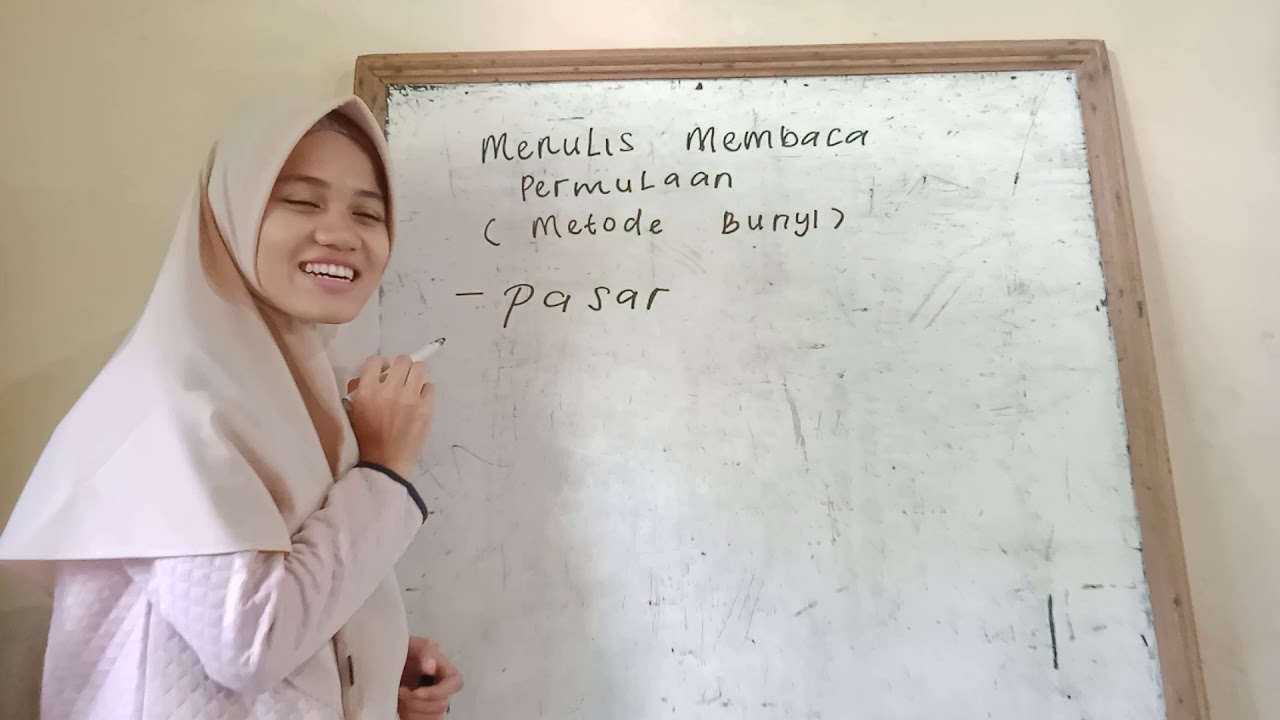 Menulis Membaca
Permulaan
( Metode Bunyi )
- Pasar